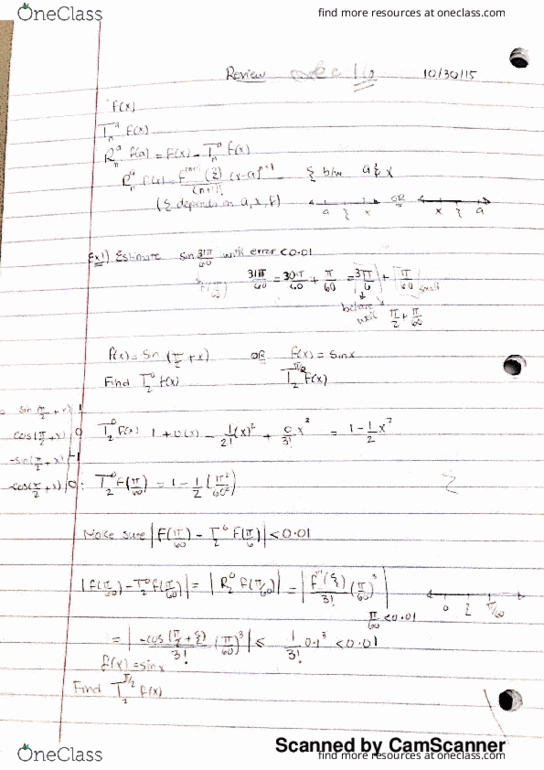 OneClass
find more resources at oneclass.com
Review 10/30/15
f(x)
T_n^a f(x)
R_n^a f(a) = f(x) - T_n^a f(x)
R_n^a f(x) = f^(n+1)(ξ) (x-a)^(n+1) / (n+1)! ξ b/w a & x
(ξ depends on a, x, f) a ξ x OR x ξ a
Ex1) Estimate sin 31π/60 with error < 0.01
31π/60 = 30π/60 + π/60 = + π/60 small
before
π/2 + π/60
f(x) = sin(π/2 + x) OR f(x) = sinx
Find T_2^0 f(x) T_2^(π/2) f(x)
sin(π/2 + x) | 1
cos(π/2 + x) | 0 T_2^0 f(x) 1 + 0(x) - 1/2! (x)^2 + 0/3! x^2 = 1 - 1/2 x^2
-sin(π/2 + x) | -1
-cos(π/2 + x) | 0 : T_2^0 f(π/60) = 1 - 1/2 (π^2/60^2)
Make sure |f(π/60) - T_2^0 f(π/6)| < 0.01
|f(π/60) - T_2^0 f(π/60)| = |R_2^0 f(π/60)| = |f'''(ξ)/3! (π/60)^3| 0 ξ π/60
π/60 < 0.01
= |-cos(π/2 + ξ)/3! (π/60)^3| ≤ 1/3! 0.1^3 < 0.01
f(x) = sinx
Find T_2^(π/2) f(x)
Scanned by CamScanner
OneClass
find more resources at oneclass.com